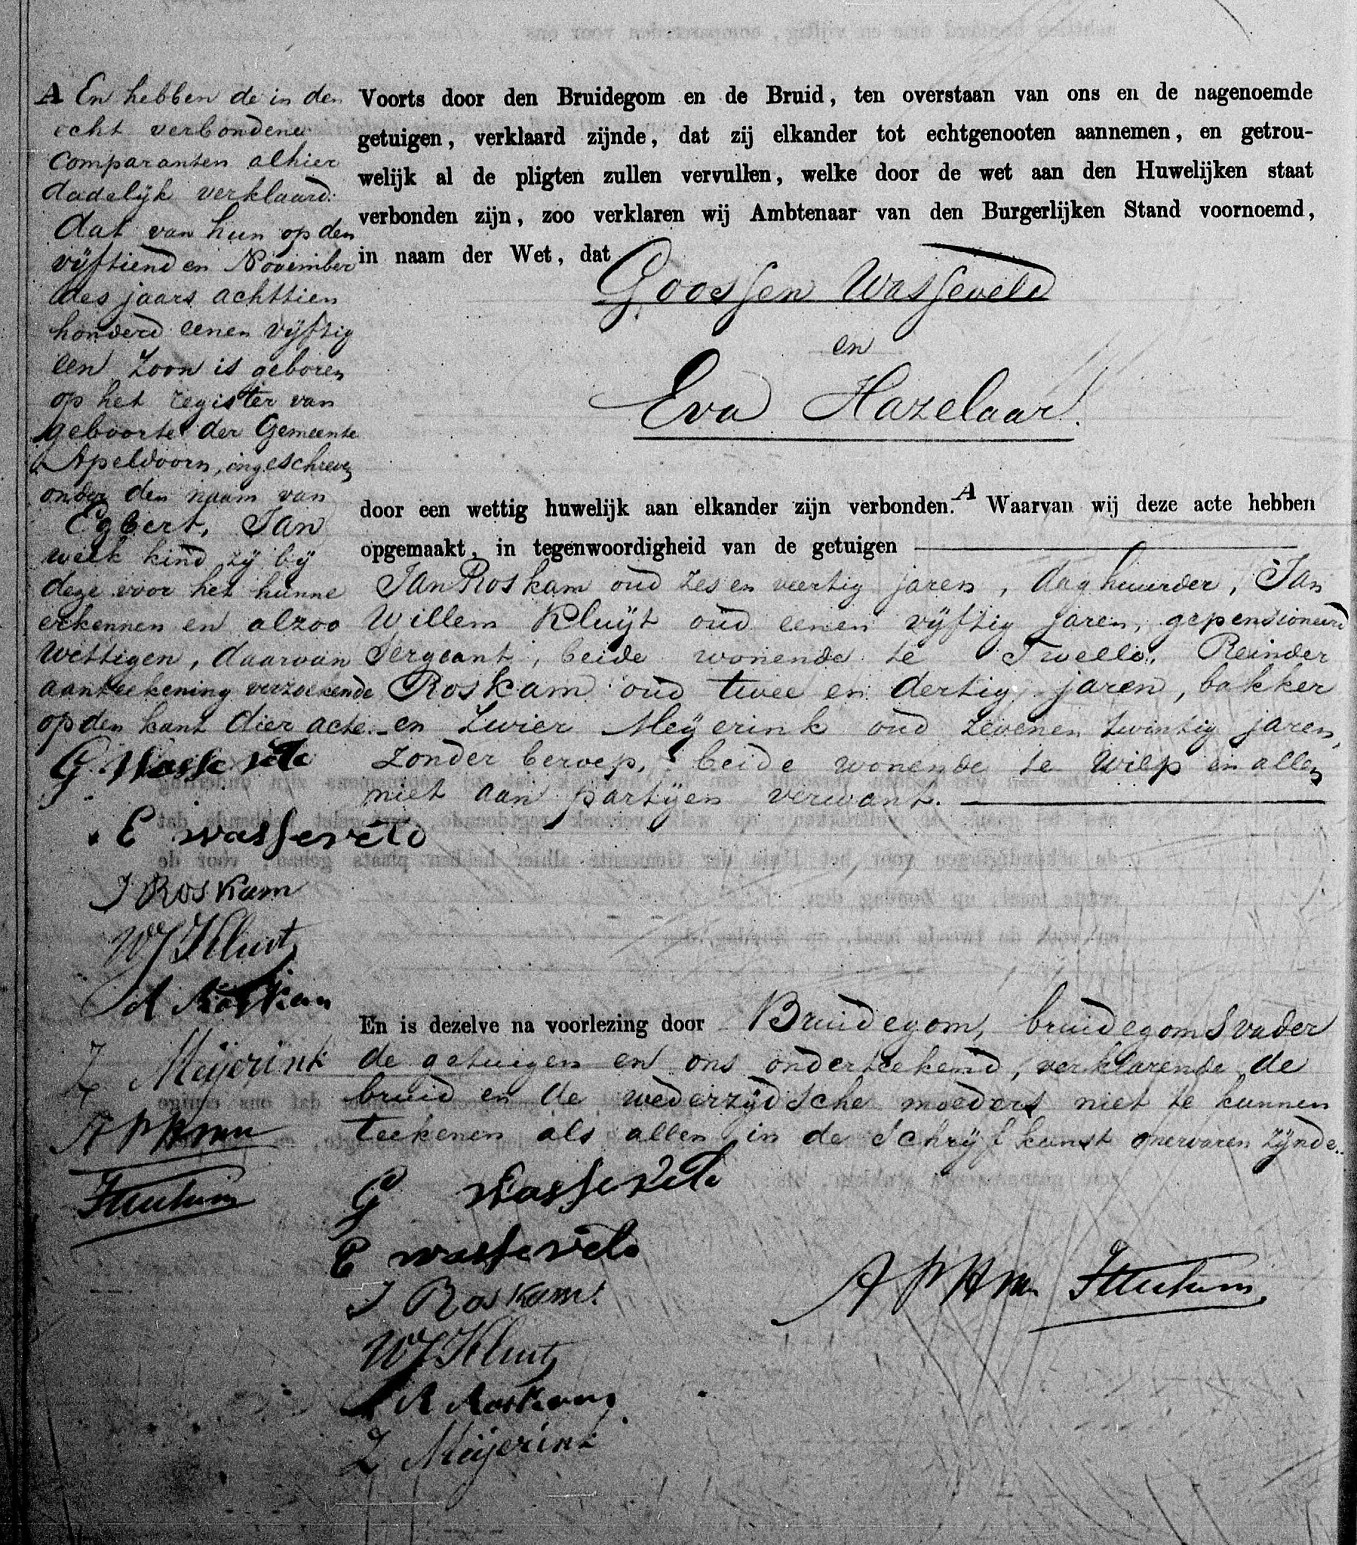 A En hebben de in den
echt verbondene
Comparanten alhier
dadelijk verklaard:
dat van hun op den
vijftienden November
des jaars achttien
honderd eenen vijftig
een zoon is geboren
op het register van
geboorte der Gemeente
Apeldoorn, ingeschreven
onder den naam van
Egbert, Jan
welk kind zij bij
deze voor het hunne
erkennen en alzoo
wettigen, daarvan
aanteekening verzoekende
op den kant dier acte.
G Wasseveld
E wasseveld
J Roskam
WJ Kluit
R Roskam
Z Meijerink
Voorts door den Bruidegom en de Bruid, ten overstaan van ons en de nagenoemde
getuigen, verklaard zijnde, dat zij elkander tot echtgenooten aannemen, en getrou-
welijk al de pligten zullen vervullen, welke door de wet aan den Huwelijken staat
verbonden zijn, zoo verklaren wij Ambtenaar van den Burgerlijken Stand voornoemd,
in naam der Wet, dat
Goossen Wasseveld
en
Eva Hazelaar
door een wettig huwelijk aan elkander zijn verbonden. A Waarvan wij deze acte hebben
opgemaakt, in tegenwoordigheid van de getuigen
Jan Roskam oud zes en veertig jaren, daghuurder, Jan
Willem Kluijt oud eenen vijftig jaren, gepensioneerd
Sergeant, beide wonende te Twello, Reinder
Roskam oud twee en dertig jaren, bakker
en Zwier Meijerink oud zevenen twintig jaren,
zonder beroep, beide wonende te Wilp en allen
niet aan partijen verwant.
En is dezelve na voorlezing door Bruidegom, bruidegoms vader
de getuigen en ons onderteekend, verklarende de
bruid en de wederzijdsche moeders niet te kunnen
teekenen als allen in de schrijfkunst onervaren zijnde.
G Wasseveld
E wasseveld
J Roskam
WJ Kluit
R Roskam
Z Meijerink